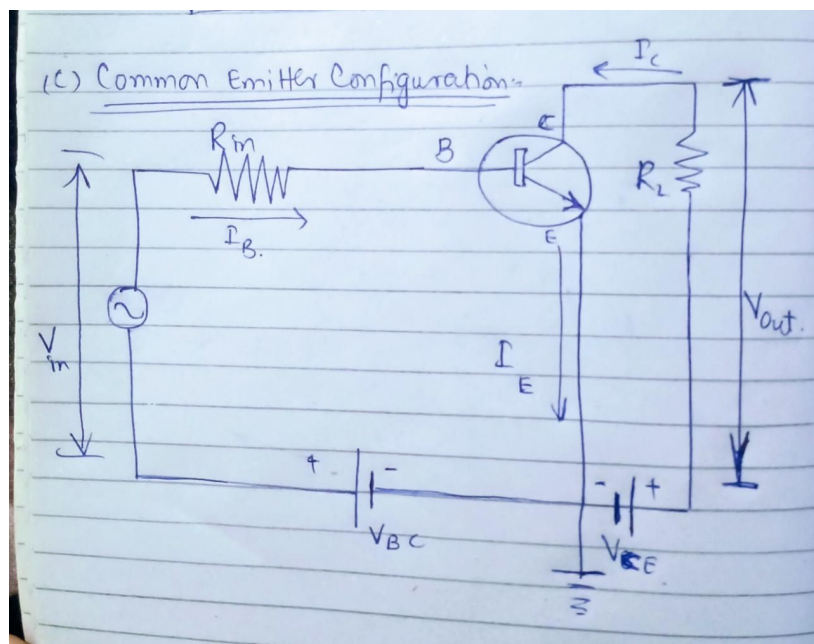 (C) Common Emitter Configuration:-
I_C
R_in
B
C
R_L
I_B.
E
V_in
I_E
V_out.
+ -
- +
V_BC